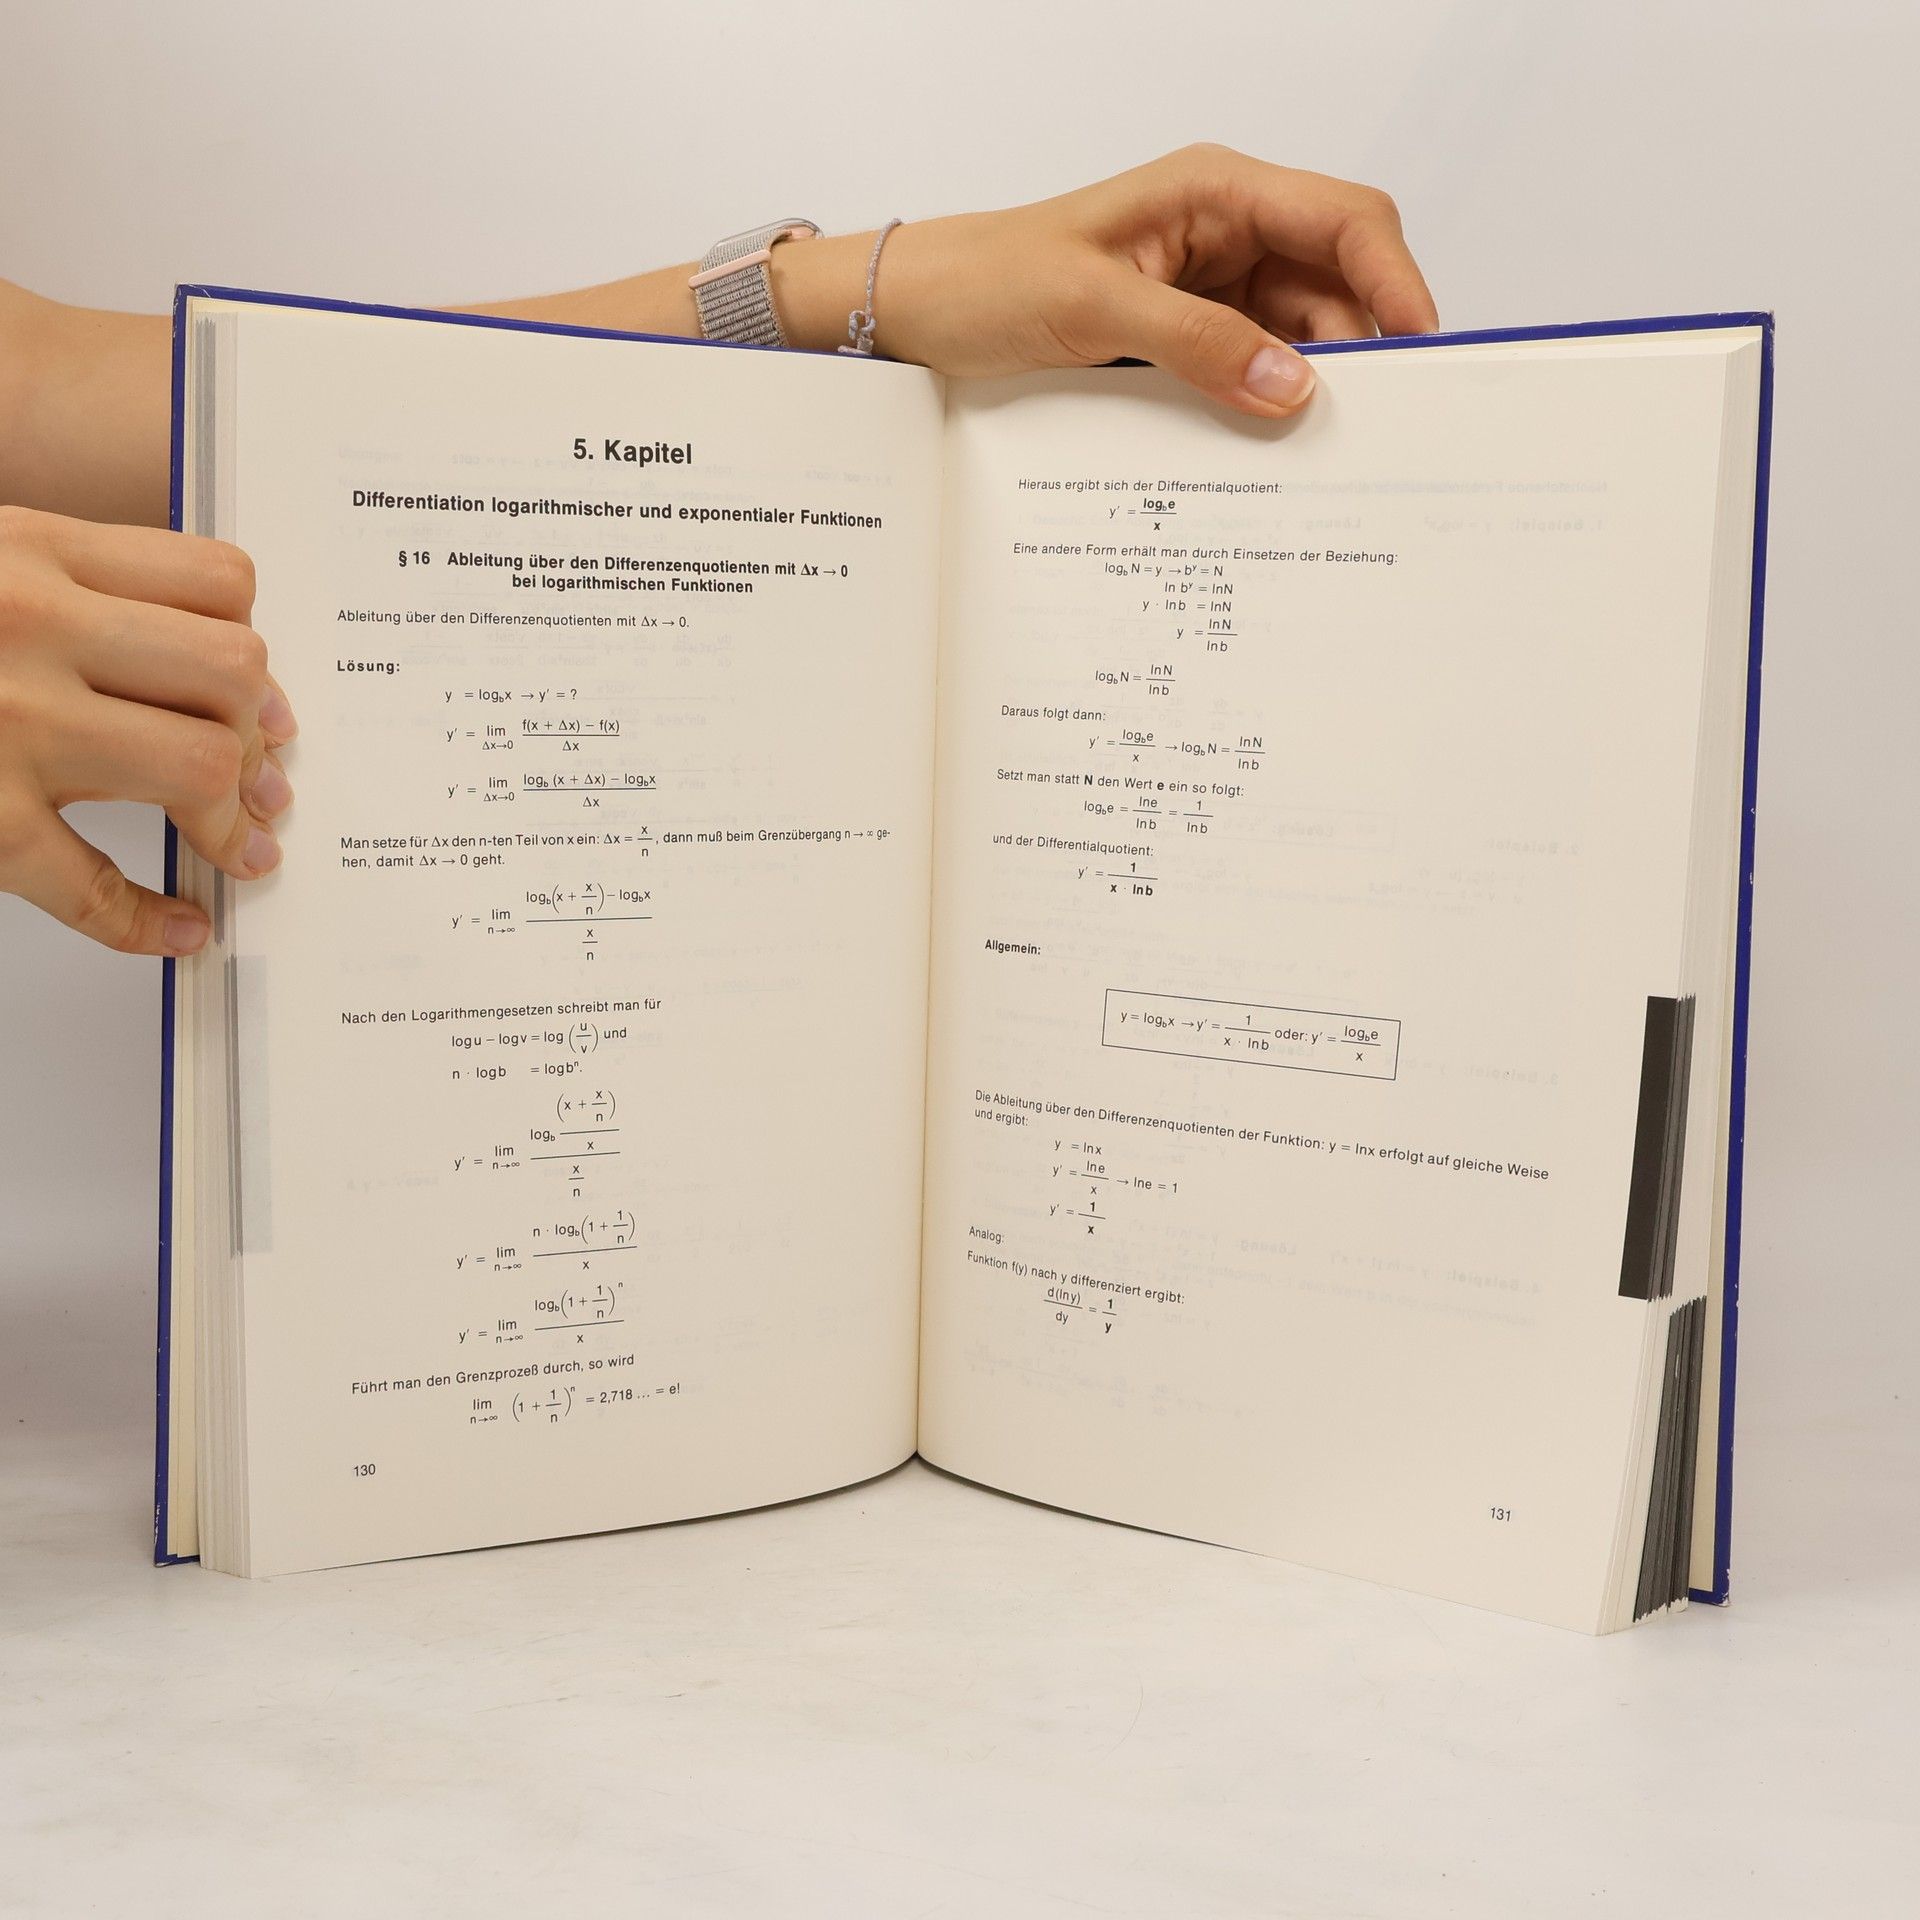 5. Kapitel
Differentiation logarithmischer und exponentialer Funktionen
§ 16 Ableitung über den Differenzenquotienten mit Δx → 0
bei logarithmischen Funktionen
Ableitung über den Differenzenquotienten mit Δx → 0.
Lösung:
y = log_b x → y' = ?
y' = lim_{Δx→0} (f(x + Δx) − f(x)) / Δx
y' = lim_{Δx→0} (log_b (x + Δx) − log_b x) / Δx
Man setze für Δx den n-ten Teil von x ein: Δx = x/n, dann muß beim Grenzübergang n → ∞ ge-
hen, damit Δx → 0 geht.
y' = lim_{n→∞} (log_b(x + x/n) − log_b x) / (x/n)
Nach den Logarithmengesetzen schreibt man für
log u − log v = log (u/v) und
n · log b = log bⁿ.
y' = lim_{n→∞} (log_b ((x + x/n) / x)) / (x/n)
y' = lim_{n→∞} (n · log_b(1 + 1/n)) / x
y' = lim_{n→∞} (log_b(1 + 1/n)ⁿ) / x
Führt man den Grenzprozeß durch, so wird
lim_{n→∞} (1 + 1/n)ⁿ = 2,718 ... = e!
130
Hieraus ergibt sich der Differentialquotient:
y' = log_b e / x
Eine andere Form erhält man durch Einsetzen der Beziehung:
log_b N = y → bʸ = N
ln bʸ = lnN
y · lnb = lnN
y = lnN / lnb
log_b N = lnN / lnb
Daraus folgt dann:
y' = log_b e / x → log_b N = lnN / lnb
Setzt man statt N den Wert e ein so folgt:
log_b e = lne / lnb = 1 / lnb
und der Differentialquotient:
y' = 1 / (x · lnb)
Allgemein:
y = log_b x → y' = 1 / (x · lnb) oder: y' = log_b e / x
Die Ableitung über den Differenzenquotienten der Funktion: y = lnx erfolgt auf gleiche Weise
und ergibt:
y = lnx
y' = lne / x → lne = 1
y' = 1 / x
Analog:
Funktion f(y) nach y differenziert ergibt:
d(lny) / dy = 1 / y
131